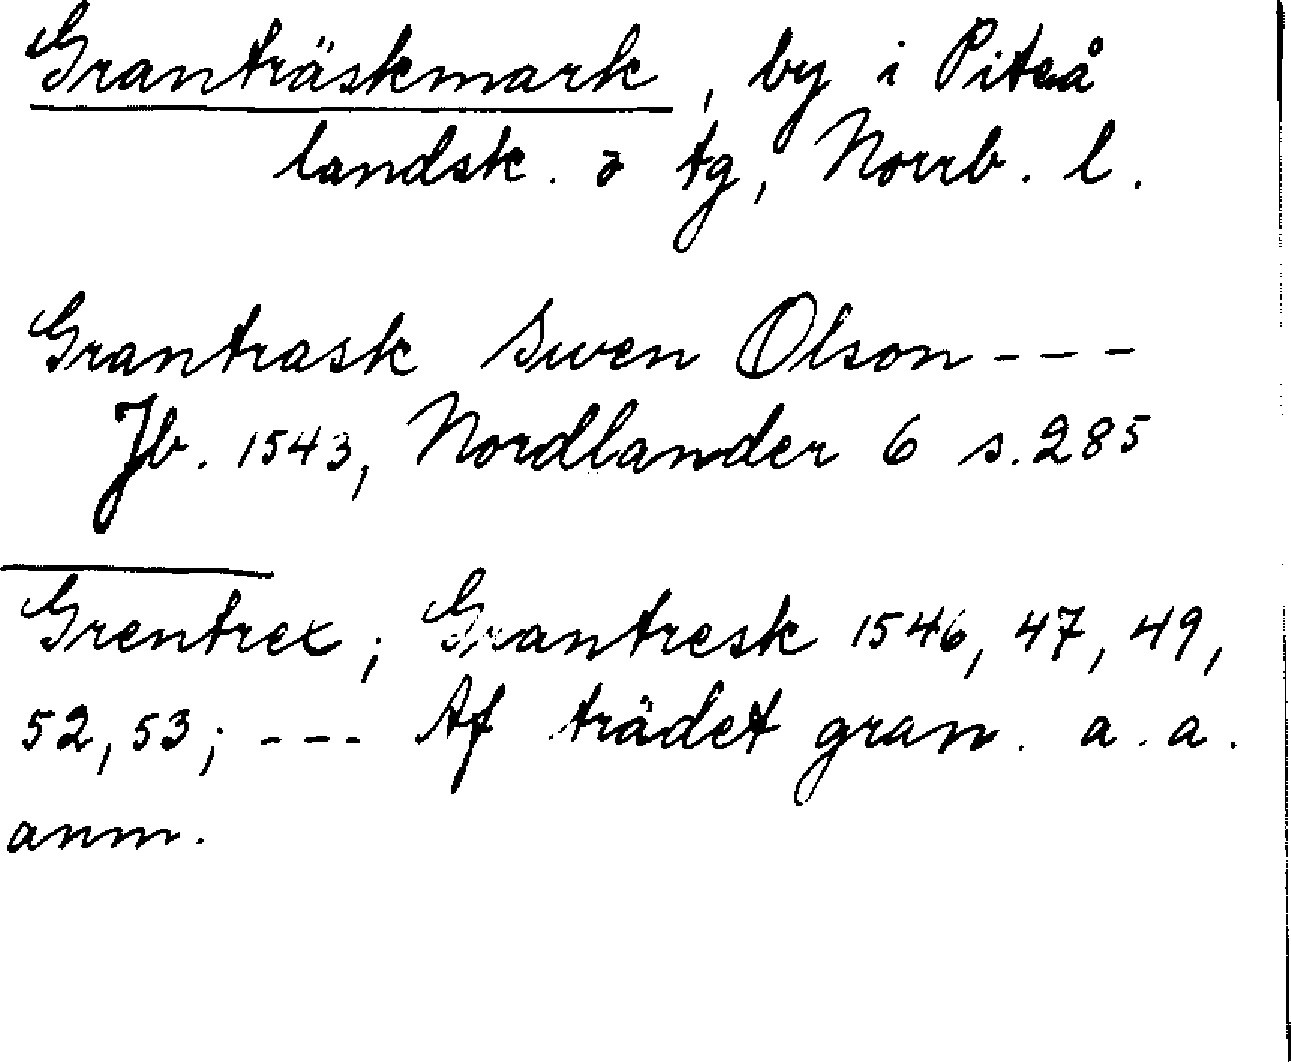 Granträskmark, by i Piteå
landsk. o tg, Norrb. l.
Grantrask Swen Olson ---
Jb. 1543, Nordlander 6 s. 285
Grentrex; Grantresk 1546, 47, 49,
52, 53; --- Af trädet gran. a. a.
anm.